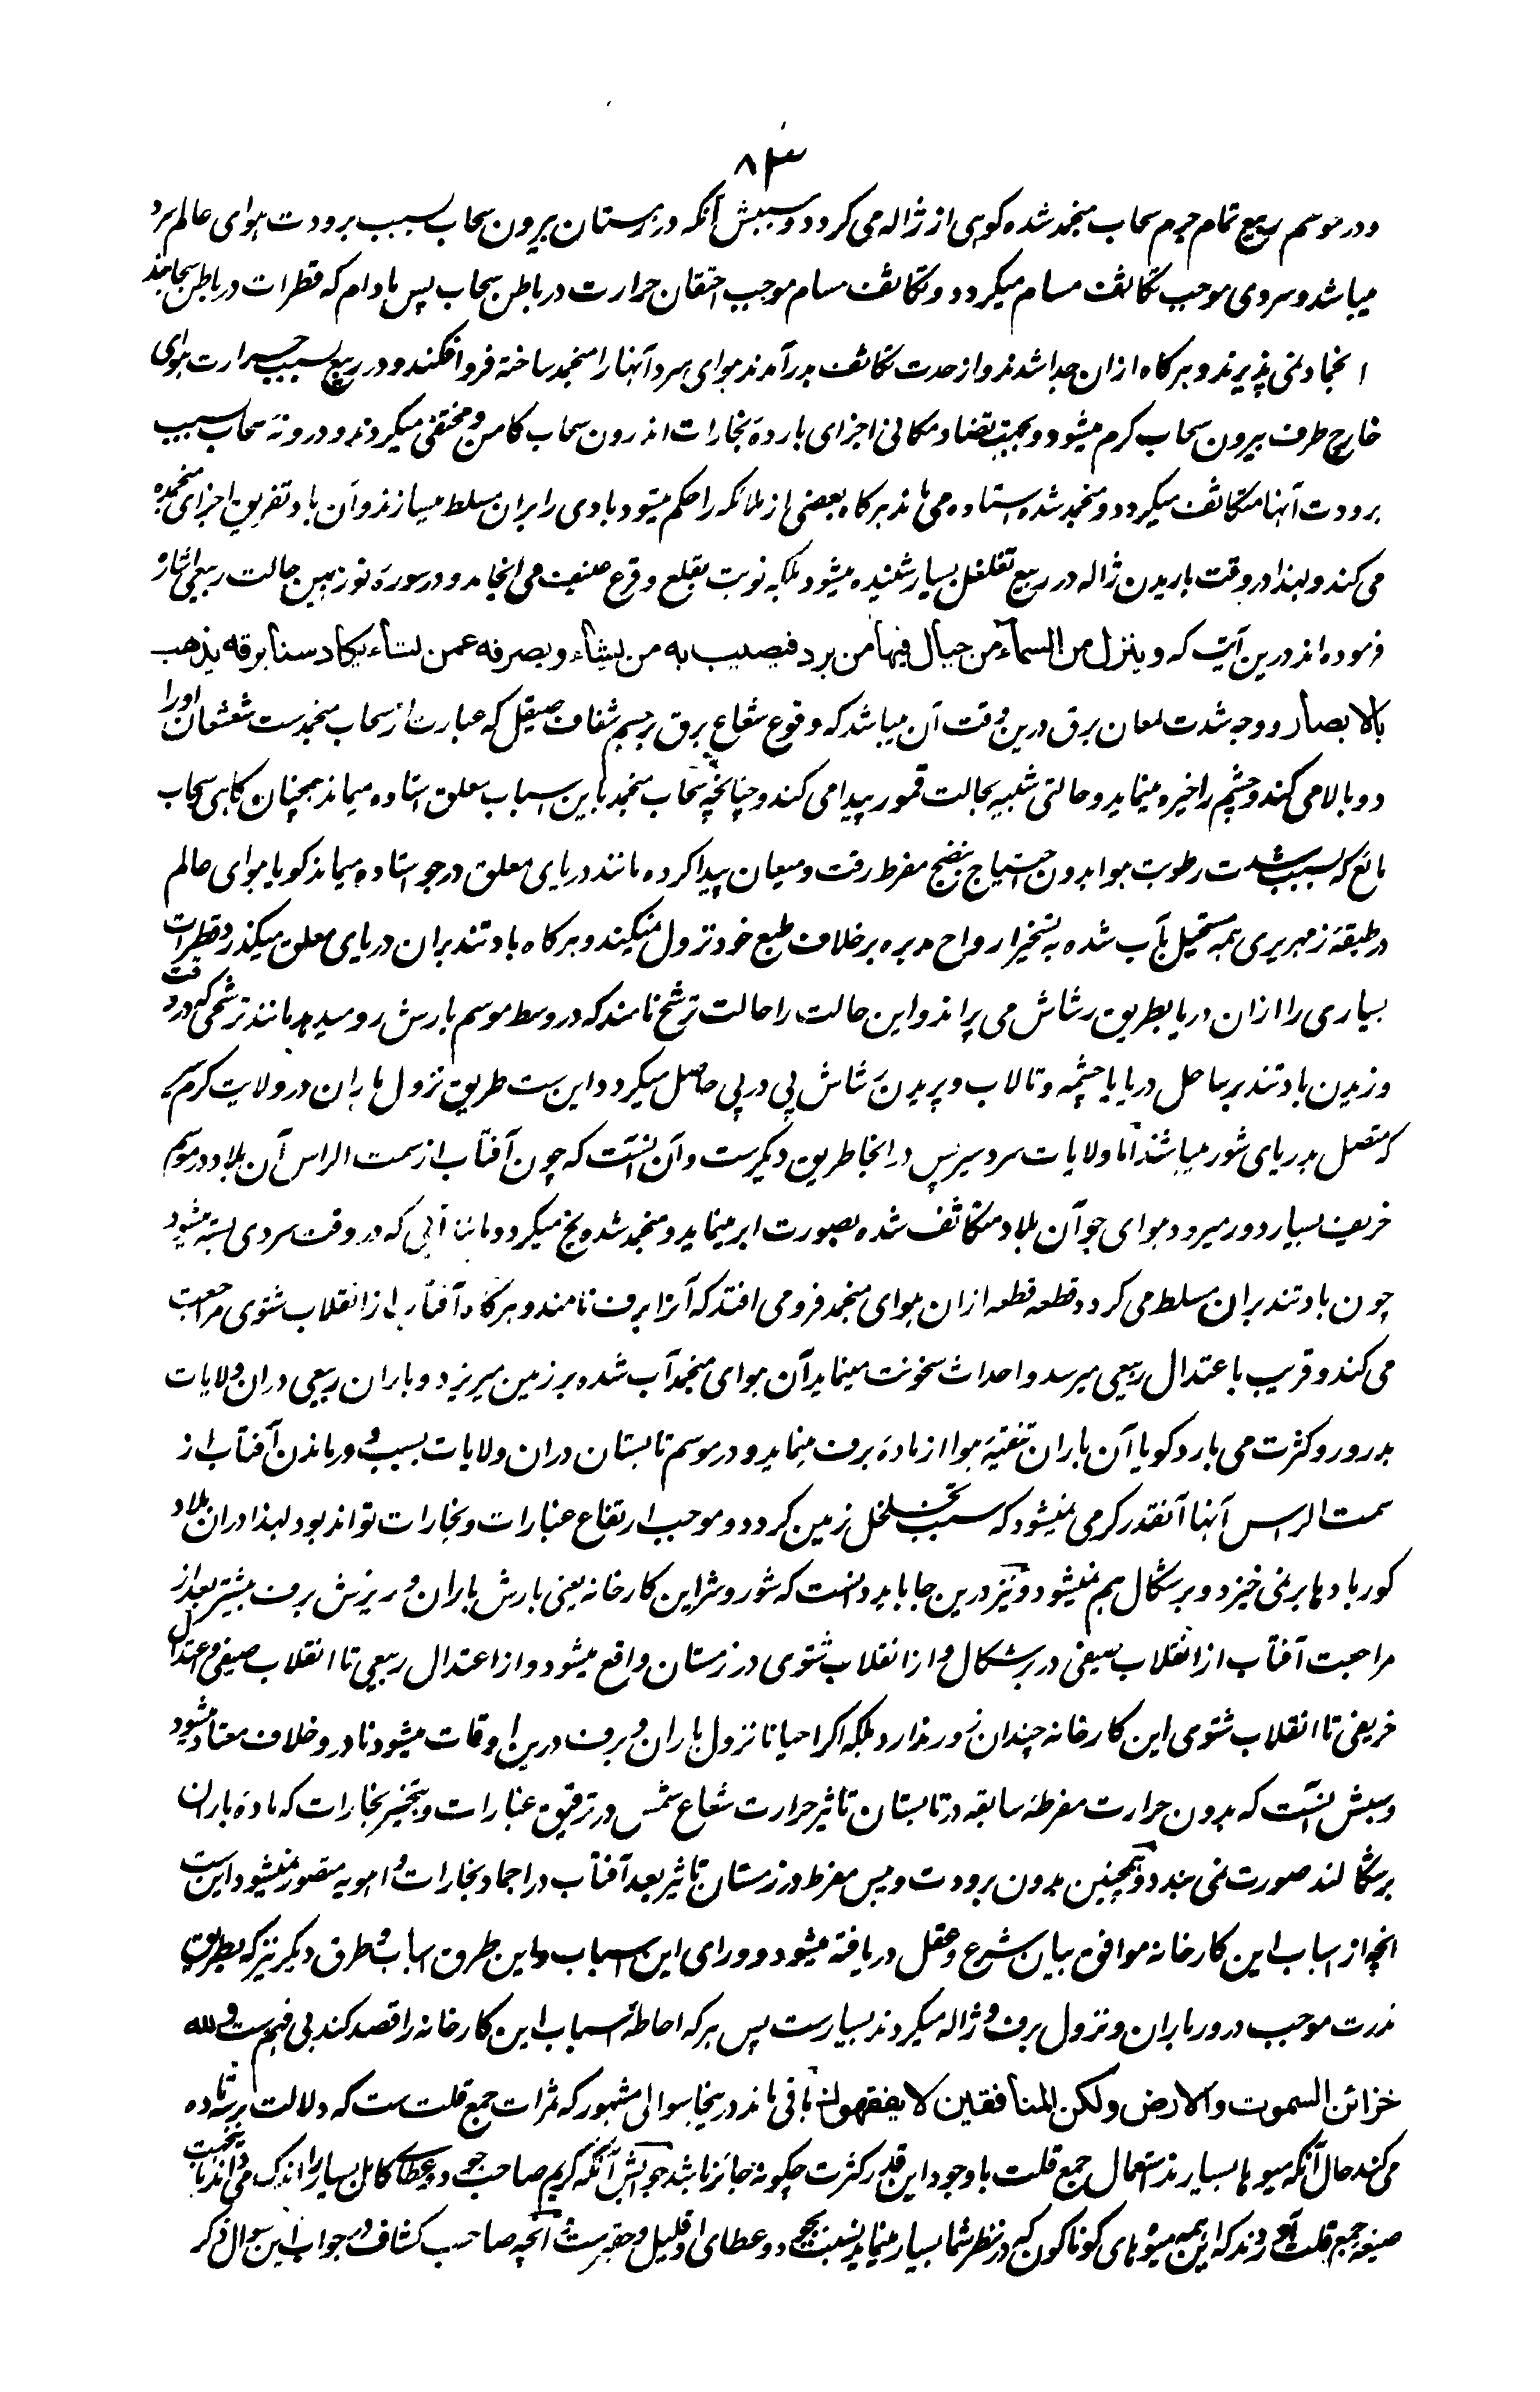 ۸۳
و در موسم ربیع تمام جرم سحاب منجمد شده کوهی از ژاله می کردد و سببش آنکه در زمستان بیرون سحاب بسبب برودت هوای عالم سرد
میباشد و سردی موجب تکاثف مسام میکردد و تکاثف مسام موجب احتقان حرارت در باطن سحاب پس مادام که قطرات در باطن سحاب اند
انجماد نمی پذیرند و هرکاه ازان جدا شدند و از حدت تکاثف بدر آمدند هوای سرد آنها را منجمد ساخته فرو افکند و در ربیع بسبب حرارت هوای
خارج طرف بیرون سحاب کرم میشود و بجهت تضاد مکانی اجزای باردهٔ بخارات اندرون سحاب کامن و مختفی میکردند و درونهٔ سحاب بسبب
برودت آنها متکاثف میکردد و منجمد شده استاده می ماند هرکاه بعضی از ملائکه را حکم میشود بادی را بران مسلط میسازند و آن باد تفریق اجزای منجمده
می کند و لهذا در وقت باریدن ژاله در ربیع تقلقل بسیار شنیده میشود بلکه نوبت بقلع و قرع عنیف می انجامد و در سورهٔ نور بهمین حالت ربیعی اشاره
فرموده اند درین آیت که و ینزل من السماء من جبال فیها من برد فیصیب به من یشاء و یصرفه عمن یشاء یکاد سنا برقه یذهب
بالابصار و وجه شدت لمعان برق درین وقت آن میباشد که وقوع شعاع برق بر جسم شفاف صیقل که عبارت از سحاب منجمدست شعشعان او را
دوبالا می کند و چشم را خیره مینماید و حالتی شبیه بحالت قمور پیدا می کند و چنانچه سحاب منجمد باین اسباب معلق استاده میماند همچنان کاهی سحاب
مائع که بسبب شدت رطوبت هوا بدون احتیاج بنضج مفرط رقت و میعان پیدا کرده مانند دریای معلق در جو استاده میماند کویا هوای عالم
در طبقهٔ زمهریری همه مستحیل بآب شده به تسخیر ارواح مدبره برخلاف طبع خود نزول نمیکند و هرکاه باد تند بران دریای معلق میکذرد قطرات
بسیاری را ازان دریا بطریق رشاش می پراند و این حالت را حالت ترشح نامند که در وسط موسم بارش رو میدهد مانند ترشحی که در وقت
وزیدن باد تند بر ساحل دریا یا چشمه و تالاب و پریدن رشاش پی در پی حاصل میکردد و این ست طریق نزول باران در ولایت کرم سیر
که متصل بدریای شور میباشند اما ولایات سردسیر پس در انجا طریق دیکرست و آن اینست که چون آفتاب از سمت الراس آن بلاد در موسم
خریف بسیار دور میرود هوای جو آن بلاد متکاثف شده بصورت ابر مینماید و منجمد شده یخ میکردد مانند آبی که در وقت سردی بسته میشود
چون باد تند بران مسلط می کردد قطعه قطعه ازان هوای منجمد فرو می افتد که آنرا برف نامند و هرکاه آفتاب از انقلاب شتوی مراجعت
می کند و قریب باعتدال ربیعی میرسد و احداث سخونت مینماید آن هوای منجمد آب شده بر زمین میریزد و باران ربیعی دران ولایات
بدرور و کثرت می بارد کویا آن باران تنقیهٔ هوا از مادهٔ برف مینماید و در موسم تابستان دران ولایات بسبب دور ماندن آفتاب از
سمت الراس آنها آنقدر کرمی نمیشود که سبب تخلخل زمین کردد و موجب ارتفاع غبارات و بخارات تواند بود لهذا دران بلاد
کوربادها برنمی خیزد و برشکال هم نمیشود و نیز درین جا باید دانست که شور و شر این کارخانه یعنی بارش باران و ریزش برف بیشتر بعد از
مراجعت آفتاب از انقلاب صیفی در برشکال و از انقلاب شتوی در زمستان واقع میشود و از اعتدال ربیعی تا انقلاب صیفی و اعتدال
خریفی تا انقلاب شتوی این کارخانه چندان زور ندارد بلکه اکر احیانا نزول باران و برف درین اوقات میشود نادر و خلاف معتاد میشود
و سببش آنست که بدون حرارت مفرطهٔ سابقه در تابستان تاثیر حرارت شعاع شمس در ترقیق غبارات و تبخیر بخارات که مادهٔ باران
برشکال اند صورت نمی بندد و همچنین بدون برودت و یبس مفرط در زمستان تاثیر بعد آفتاب در اجماد بخارات و اهویه متصور نمیشود این ست
آنچه از اسباب این کارخانه موافق بیان شرع و عقل دریافته میشود و ورای این اسباب و این طروق اسباب و طرق دیکر نیز که بطریق
ندرت موجب درور باران و نزول برف و ژاله میکردند بسیارست پس هرکه احاطهٔ اسباب این کارخانه را قصد کند بی فهم ست و لله
خزائن السموت والارض ولکن المنافقین لا یفقهون باقی ماند درینجا سوالی مشهور که ثمرات جمع قلت ست که دلالت بر ته ده
می کند حال آنکه میوها بسیارند استعمال جمع قلت با وجود این قدر کثرت چکونه جائز باشد جوابش آنکه کریم صاحب جود و عطای کامل بسیار را اندک می داند
صیغهٔ جمع قلت آوردند که این همه میوهای کوناکون که در نظر شما بسیار مینماید بنسبت جود و عطای او قلیل و حقیرست و آنچه صاحب کشاف در جواب این سوال ذکر